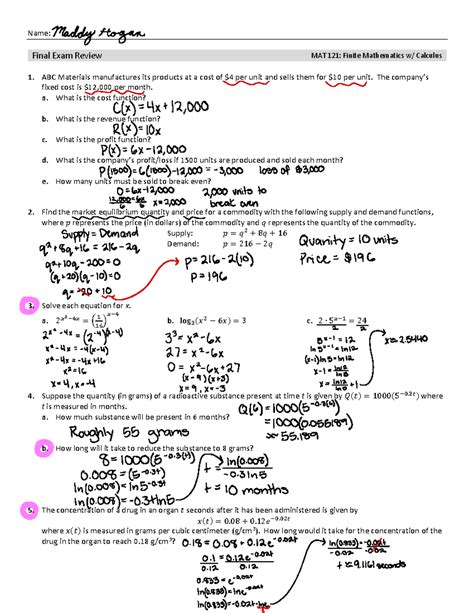 Name: Maddy Hogan
Final Exam Review MAT121: Finite Mathematics w/ Calculus
1. ABC Materials manufactures its products at a cost of $4 per unit and sells them for $10 per unit. The company's
fixed cost is $12,000 per month.
a. What is the cost function?
C(x) = 4x + 12,000
b. What is the revenue function?
R(x) = 10x
c. What is the profit function?
P(x) = 6x - 12,000
d. What is the company's profit/loss if 1500 units are produced and sold each month?
P(1500) = 6(1500) - 12,000 = -3,000 loss of $3,000
e. How many units must be sold to break even?
0 = 6x - 12,000 2,000 units to
12,000/6 = 6x/6 x = 2,000 break even
2. Find the market equilibrium quantity and price for a commodity with the following supply and demand functions,
where p represents the price (in dollars) of the commodity and q represents the quantity of the commodity.
Supply = Demand Supply: p = q² + 8q + 16 Quantity = 10 units
q² + 8q + 16 = 216 - 2q Demand: p = 216 - 2q Price = $196
q² + 10q - 200 = 0 p = 216 - 2(10)
(q+20)(q-10) = 0 p = 196
q = -20 + 10
3. Solve each equation for x.
a. 2^(x²-4x) = (1/16)^(x-4) b. log₃(x² - 6x) = 3 c. 2 · 5^(x-1) = 24
2^(x²-4x) = (2^-4)^(x-4) 3³ = x² - 6x 5^(x-1) = 12 x ≈ 2.5440
x² - 4x = -4(x-4) 27 = x² - 6x ln5^(x-1) = ln12
x² - 4x = -4x + 16 0 = x² - 6x + 27 (x-1)ln5 = ln12
x² = 16 (x-9)(x+3) x - 1 = ln12/ln5
x = 4, x = -4 x = 9, x = -3 x = ln12/ln5 + 1
4. Suppose the quantity (in grams) of a radioactive substance present at time t is given by Q(t) = 1000(5^(-0.3t)) where
t is measured in months.
a. How much substance will be present in 6 months?
Q(6) = 1000(5^(-0.3(6)))
= 1000(0.055189)
Roughly 55 grams ≈ 55.189
b. How long will it take to reduce the substance to 8 grams?
8 = 1000(5^(-0.3(t))) t = ln(0.008)/-0.3ln5
0.008 = (5^(-0.3t))
ln(0.008) = ln5^(-0.3t) t = 10 months
ln(0.008) = -0.3tln5
5. The concentration of a drug in an organ t seconds after it has been administered is given by
x(t) = 0.08 + 0.12e^(-0.02t)
where x(t) is measured in grams per cubic centimeter (g/cm³). How long would it take for the concentration of the
drug in the organ to reach 0.18 g/cm³? 0.18 = 0.08 + 0.12e^(-0.02t) ln(0.833)/-0.02 = -0.02t/-0.02
0.1/0.12 = 0.12e^(-0.02t)/0.12 t ≈ 9.1161 seconds
0.833 = e^(-0.02t)
ln(0.833) = lne^(-0.02t)
ln(0.833) = -0.02t · lne